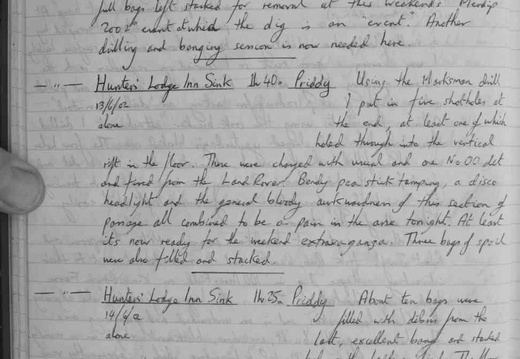 full bags left stacked for removal at this weekends Mendip
2002 event at which the dig is an "event". Another
drilling and banging session is now needed here.
— " — Hunters' Lodge Inn Sink 1h 40m Priddy Using the Marksman drill
13/6/02 I put in five shotholes at
alone the end, at least one of which
holed through into the vertical
rift in the floor. These were charged with usual and one No.00 det
and fired from the Land Rover. Bendy pea stick tamping, a disco
headlight and the general bloody awkwardness of this section of
passage all combined to be a pain in the arse tonight. At least
its now ready for the weekend extravaganza. Three bags of spoil
were also filled and stacked.
— " — Hunters' Lodge Inn Sink 1h 25m Priddy About ten bags were
14/6/02 filled with debris from the
alone last, excellent bang and stacked